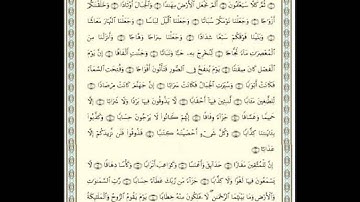 ثُمَّ كَلَّا سَيَعْلَمُونَ ۝ أَلَمْ نَجْعَلِ ٱلْأَرْضَ مِهَٰدًا ۝ وَٱلْجِبَالَ أَوْتَادًا ۝ وَخَلَقْنَٰكُمْ
أَزْوَٰجًا ۝ وَجَعَلْنَا نَوْمَكُمْ سُبَاتًا ۝ وَجَعَلْنَا ٱلَّيْلَ لِبَاسًا ۝ وَجَعَلْنَا ٱلنَّهَارَ مَعَاشًا
۝ وَبَنَيْنَا فَوْقَكُمْ سَبْعًا شِدَادًا ۝ وَجَعَلْنَا سِرَاجًا وَهَّاجًا ۝ وَأَنزَلْنَا مِنَ
ٱلْمُعْصِرَٰتِ مَآءً ثَجَّاجًا ۝ لِّنُخْرِجَ بِهِۦ حَبًّا وَنَبَاتًا ۝ وَجَنَّٰتٍ أَلْفَافًا ۝ إِنَّ يَوْمَ
ٱلْفَصْلِ كَانَ مِيقَٰتًا ۝ يَوْمَ يُنفَخُ فِى ٱلصُّورِ فَتَأْتُونَ أَفْوَاجًا ۝ وَفُتِحَتِ ٱلسَّمَآءُ
فَكَانَتْ أَبْوَٰبًا ۝ وَسُيِّرَتِ ٱلْجِبَالُ فَكَانَتْ سَرَابًا ۝ إِنَّ جَهَنَّمَ كَانَتْ مِرْصَادًا ۝
لِّلطَّٰغِينَ مَـَٔابًا ۝ لَّٰبِثِينَ فِيهَآ أَحْقَابًا ۝ لَّا يَذُوقُونَ فِيهَا بَرْدًا وَلَا شَرَابًا ۝ إِلَّا
حَمِيمًا وَغَسَّاقًا ۝ جَزَآءً وِفَاقًا ۝ إِنَّهُمْ كَانُوا۟ لَا يَرْجُونَ حِسَابًا ۝ وَكَذَّبُوا۟
بِـَٔايَٰتِنَا كِذَّابًا ۝ وَكُلَّ شَىْءٍ أَحْصَيْنَٰهُ كِتَٰبًا ۝ فَذُوقُوا۟ فَلَن نَّزِيدَكُمْ إِلَّا
عَذَابًا ۝
إِنَّ لِلْمُتَّقِينَ مَفَازًا ۝ حَدَآئِقَ وَأَعْنَٰبًا ۝ وَكَوَاعِبَ أَتْرَابًا ۝ وَكَأْسًا دِهَاقًا ۝ لَّا
يَسْمَعُونَ فِيهَا لَغْوًا وَلَا كِذَّٰبًا ۝ جَزَآءً مِّن رَّبِّكَ عَطَآءً حِسَابًا ۝ رَّبِّ ٱلسَّمَٰوَٰتِ
وَٱلْأَرْضِ وَمَا بَيْنَهُمَا ٱلرَّحْمَٰنِ لَا يَمْلِكُونَ مِنْهُ خِطَابًا ۝ يَوْمَ يَقُومُ ٱلرُّوحُ وَٱلْمَلَٰٓئِكَةُ